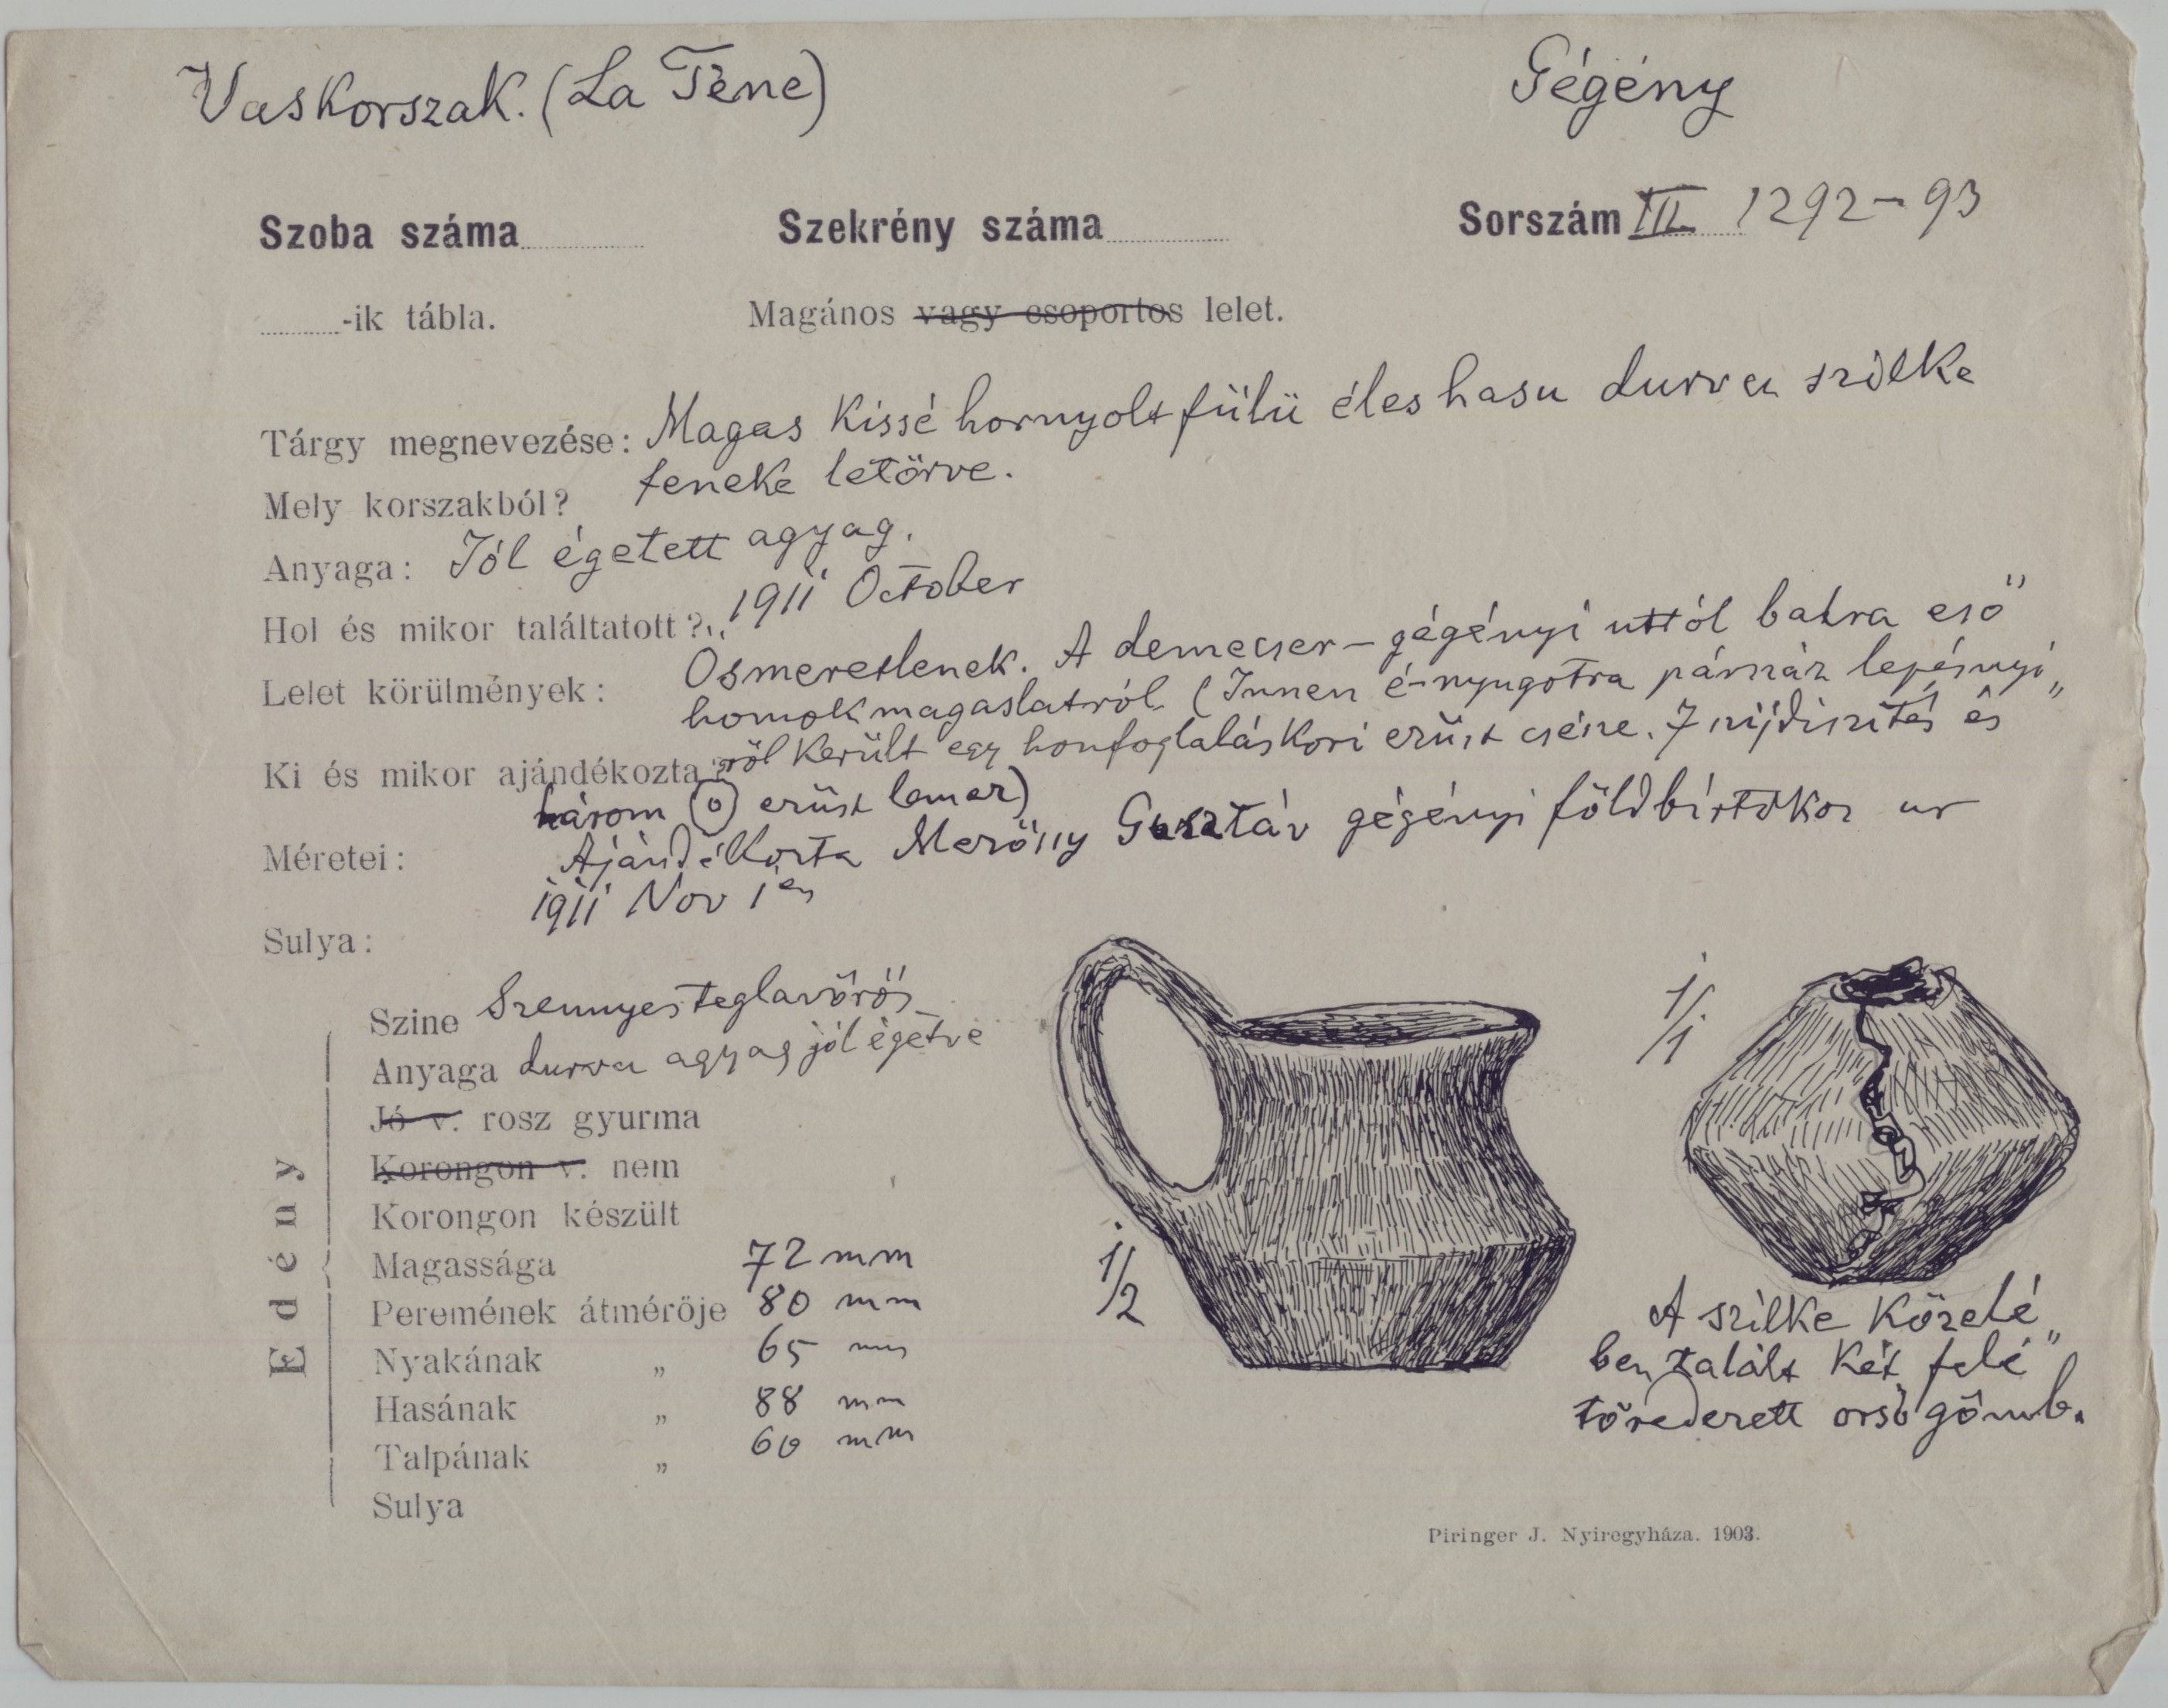 Vaskorszak. (La Tène)
Gégény
Szoba száma
Szekrény száma
Sorszám III. 1292–93
-ik tábla.
Magános vagy csoportos lelet.
Tárgy megnevezése: Magas kissé hornyolt fülü éles hasu durva szilke
feneke letörve.
Mely korszakból?
Anyaga: Jól égetett agyag.
Hol és mikor találtatott? 1911 October
Lelet körülmények: Osmeretlenek. A demecser–gégényi uttól balra eső
homokmagaslatról. (Innen é-nyugotra párszáz lépésnyi„
ről került egy honfoglaláskori ezüst csésze. 7 szíjdiszítés és
Ki és mikor ajándékozta?
három ezüst lemez)
Ajándékozta Merőny Gusztáv gégényi földbirtokos ur
1911 Nov 1én
Méretei:
Sulya:
Edény
Szine Szennyes teglavörös
Anyaga durva agyag jól égetve
Jó v. rosz gyurma
Korongon v. nem
Korongon készült
Magassága 72 mm
Peremének átmérője 80 mm
Nyakának „ 65 mm
Hasának „ 88 mm
Talpának „ 60 mm
Sulya
1/2
1/1
A szilke közelé„
ben talált két felé„
töredezett orsógömb.
Piringer J. Nyiregyháza. 1903.